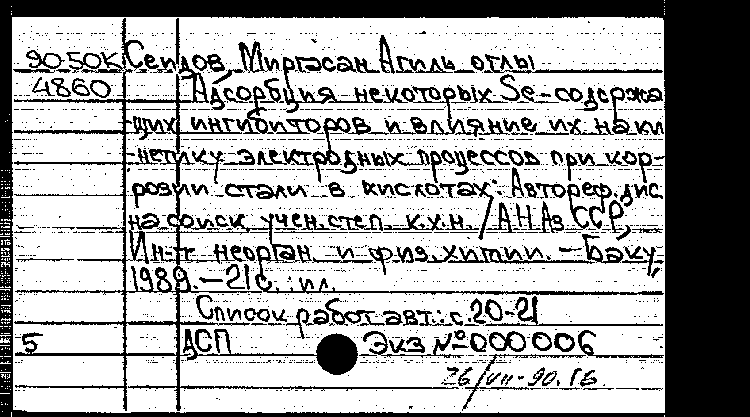 9050К Сеидов, Миргасан Агиль оглы
4860 Адсорбция некоторых Se-содержа
щих ингибиторов и влияние их на ки
нетику электродных процессов при кор-
розии стали в кислотах: Автореф. дис
на соиск. учен. степ. к.х.н. / АН АзССР,
Ин-т неорган. и физ. химии. - Баку,
1989. - 21 с. : ил.
Список работ авт.: с. 20-21
5 ДСП Экз № 000006
26/VII-90.